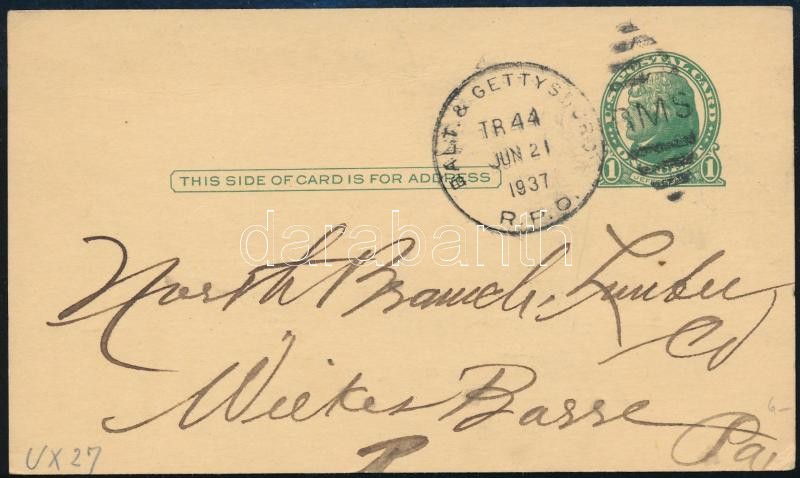 BALT. & GETTYSBURG
TR 44
JUN 21
1937
R.P.O.
RMS
U.S. POSTAL CARD
1 ONE CENT 1
THIS SIDE OF CARD IS FOR ADDRESS
darabanth
North Branch Lumber
Co
Wilkes Barre
Pa,
UX27